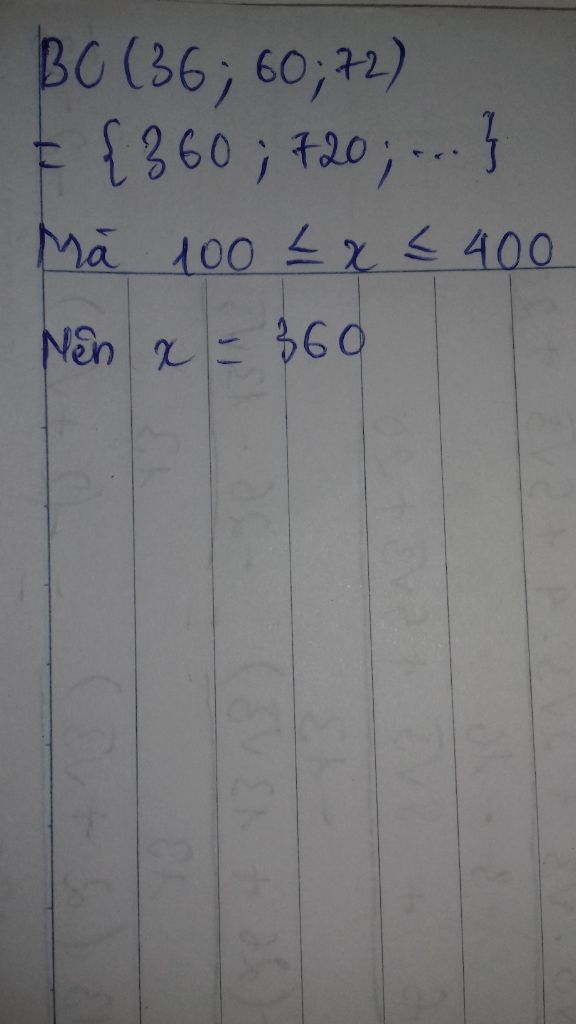 BC (36; 60; 72)
= {360; 720; ...}
Mà 100 ≤ x ≤ 400
Nên x = 360